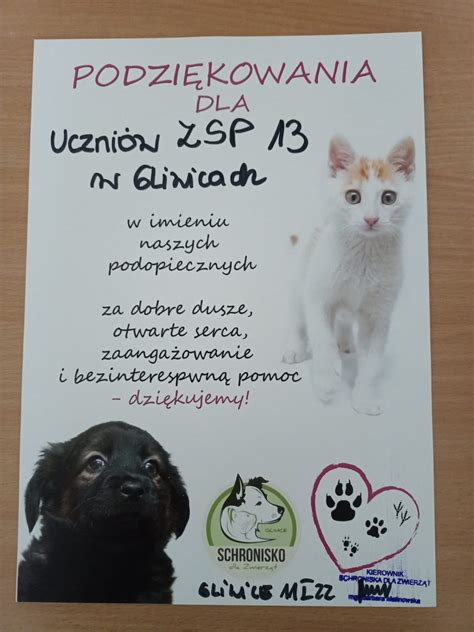 PODZIĘKOWANIA
DLA
UCZNIÓW ZSP 13
w Gliwicach
w imieniu
naszych
podopiecznych
za dobre dusze,
otwarte serca,
zaangażowanie
i bezinterespwną pomoc
- dziękujemy!
GLIWICE
SCHRONISKO
dla Zwierząt
KIEROWNIK
SCHRONISKA DLA ZWIERZĄT
GLIWICE